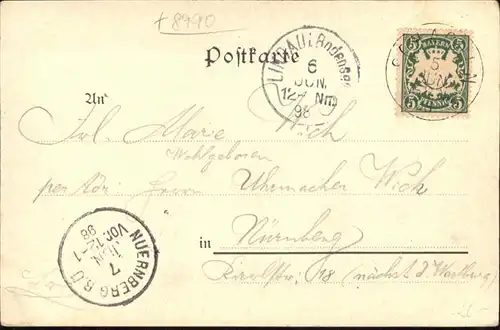 +8990
Postkarte
LINDAU i. Bodensee
6
JUN.
12-1 Nm
98
5
JUN
BAYERN
5 5
PFENNIG
An
Frl. Marie Wich
Wohlgeboren
per Adr: Herrn Uhrmacher Wich
in Nürnberg
Karlstr. 18 (nächst d. Wartburg)
NUERNBERG 8.O
7
JUN.
Vor. 12-1
98